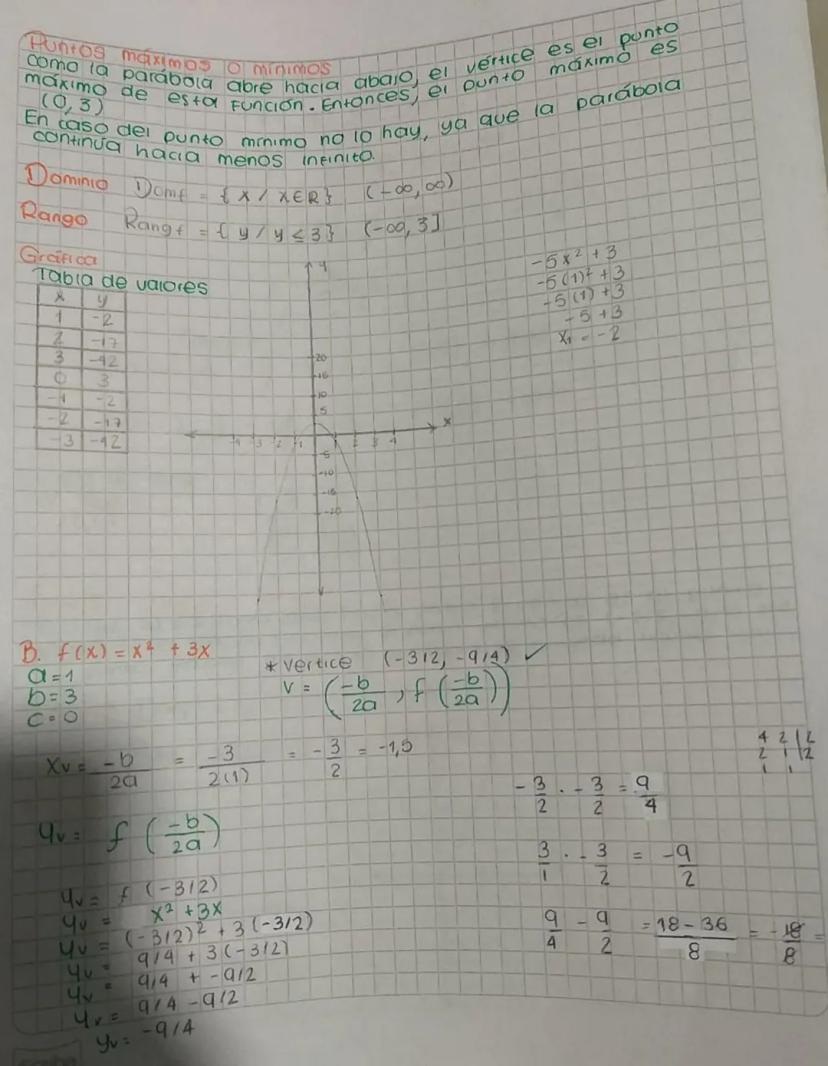 Puntos máximos o mínimos
Como la parábola abre hacia abajo, el vértice es el punto
máximo de esta función. Entonces, el punto máximo es
(0,3)
En caso del punto mínimo no lo hay, ya que la parábola
continúa hacia menos infinito.
Dominio Domf = { x / x∈R } (-∞,∞)
Rango Rangf = { y / y ≤ 3 } (-∞, 3]
Gráfica
Tabla de valores
x y
1 -2
2 -17
3 -42
0 3
-1 -2
-2 -17
-3 -42
y
20
15
10
5
x
-4 -3 -2 -1 1 2 3 4
-5
-10
-15
-20
-5x² + 3
-5(1)² + 3
-5(1) + 3
-5 + 3
x₁ = -2
B. f(x) = x² + 3x
a = 1
b = 3
c = 0
* vertice (-3/2, -9/4) ✓
V = (-b/2a , f (-b/2a))
Xv = -b/2a = -3/2(1) = -3/2 = -1,5
Yv = f (-b/2a)
Yv = f (-3/2)
Yv = x² + 3x
Yv = (-3/2)² + 3(-3/2)
Yv = 9/4 + 3(-3/2)
Yv = 9/4 + -9/2
Yv = 9/4 - 9/2
Yv = -9/4
4 2 | 2
2 1 | 2
1 1
-3/2 · -3/2 = 9/4
3/1 · -3/2 = -9/2
9/4 - 9/2 = 18-36/8 = -18/8 =